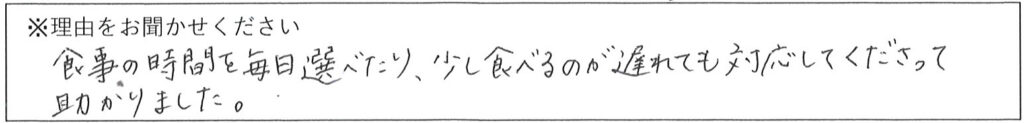 ※理由をお聞かせください
食事の時間を毎日選べたり、少し食べるのが遅れても対応してくださって
助かりました。